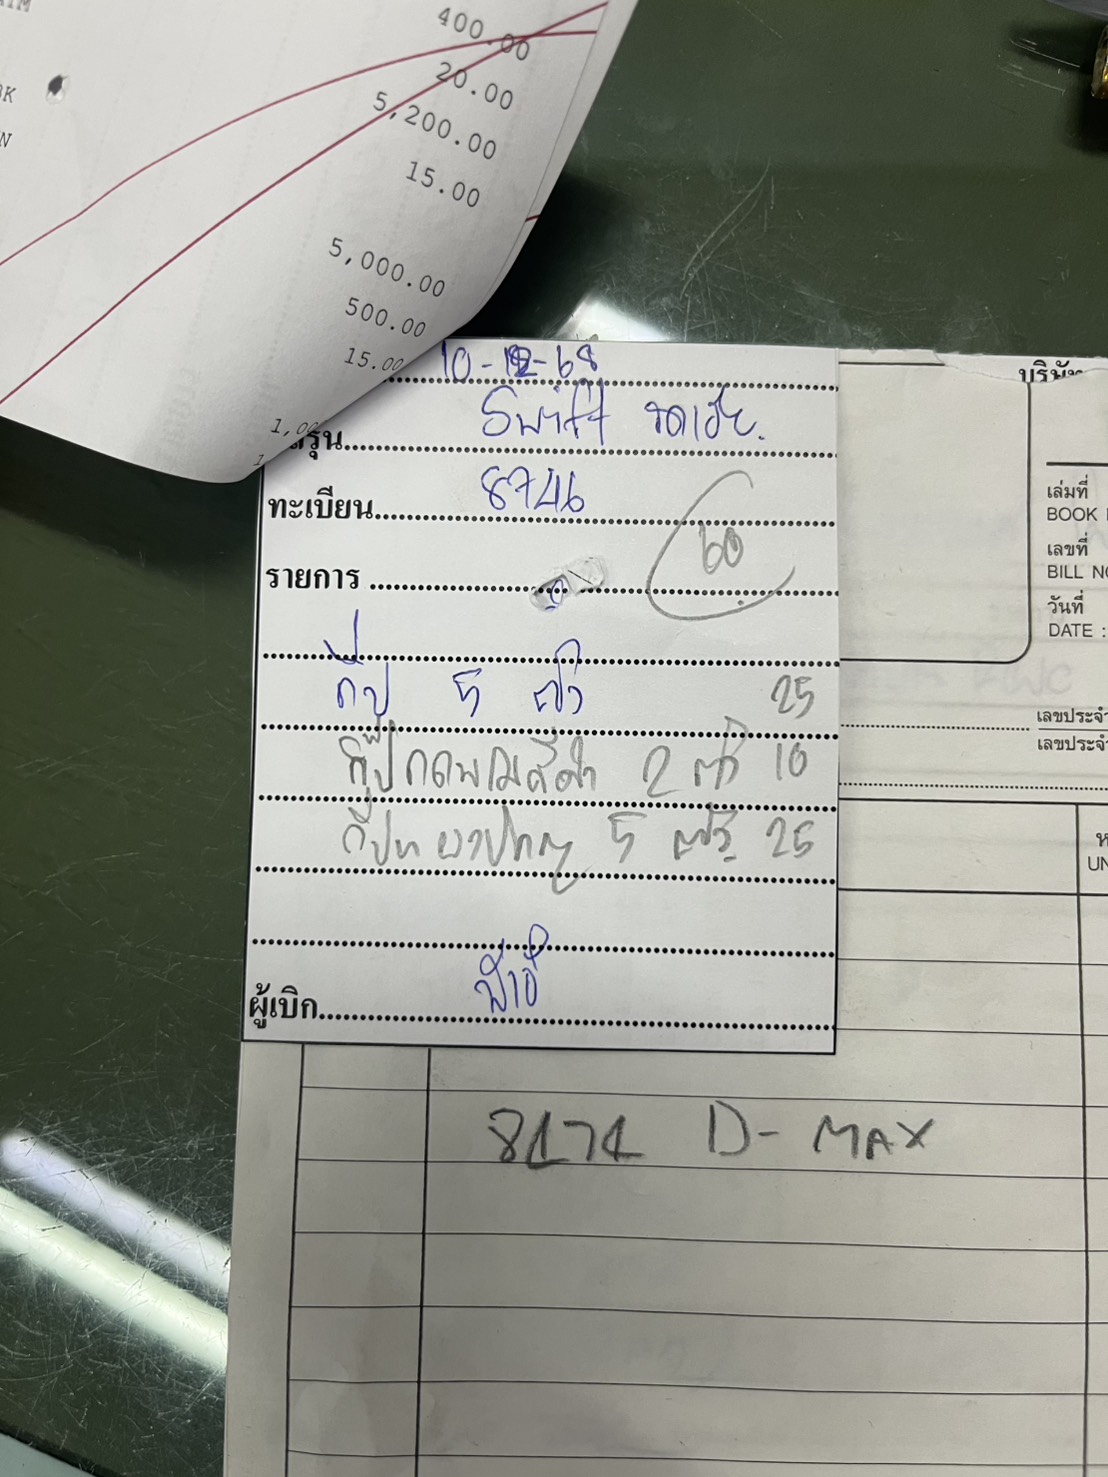 400.00
20.00
5,200.00
15.00
5,000.00
500.00
15.00
1,00
10-12-68
รุ่น Swift
ทะเบียน 8746
60
รายการ
กิ๊ป 5 ตัว 25
กิ๊ป 2 ตัว 10
กิ๊ป 5 ตัว 25
ผู้เบิก
8474 D-MAX
บริษัท
เล่มที่
BOOK
เลขที่
BILL NO
วันที่
DATE :
เลขประจำ
เลขประจำ
UN